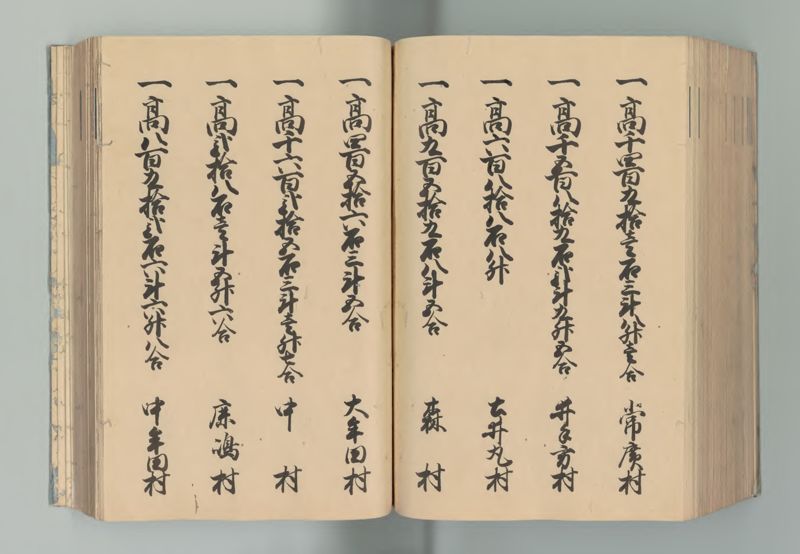 一高千四百九拾壱石三斗八升壱合 常廣村
一高千五百八拾九石弐斗九升五合 井手方村
一高六百八拾八石八升 土井丸村
一高九百五拾九石八斗五合 森村
一高四百五拾六石三斗五合 大牟田村
一高千六百弐拾五石三斗壱升七合 中村
一高弐拾八石壱斗五升六合 廉嶋村
一高八百九拾弐石六斗六升八合 中牟田村